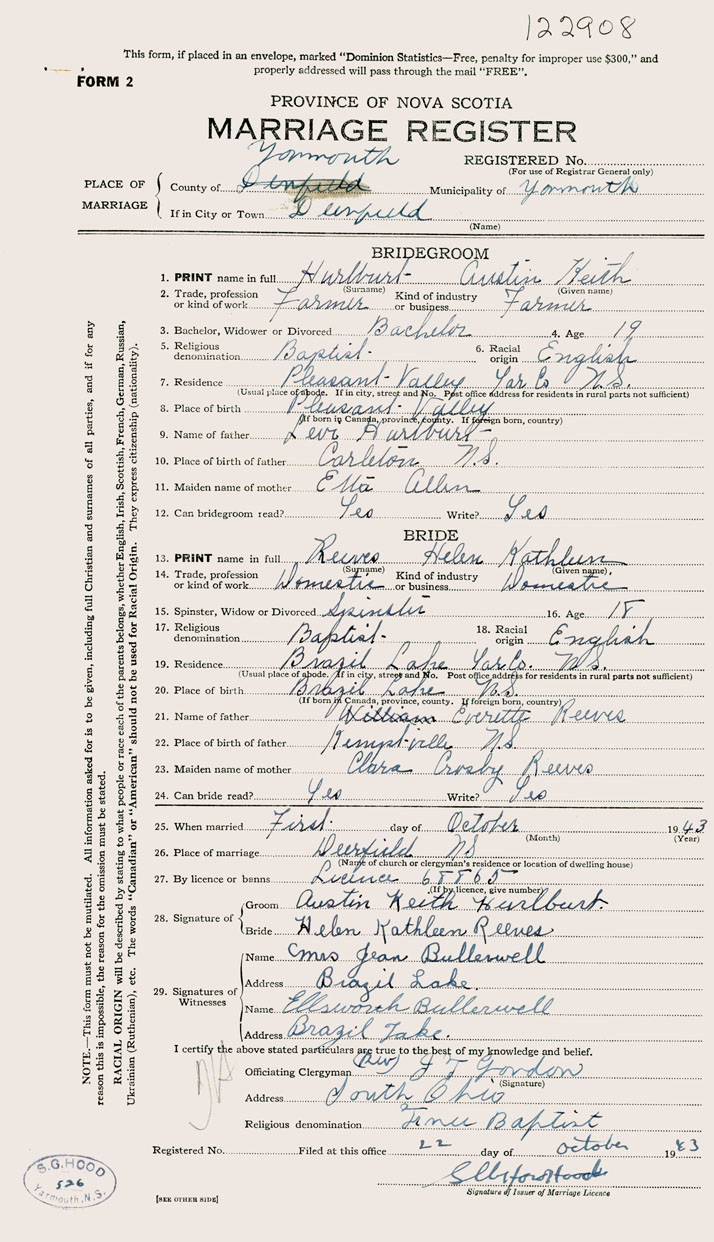 122908
This form, if placed in an envelope, marked "Dominion Statistics—Free, penalty for improper use $300," and
properly addressed will pass through the mail "FREE".
FORM 2
PROVINCE OF NOVA SCOTIA
MARRIAGE REGISTER
Yarmouth
REGISTERED No.
(For use of Registrar General only)
PLACE OF MARRIAGE
County of Deerfield Municipality of Yarmouth
If in City or Town Deerfield
(Name)
BRIDEGROOM
1. PRINT name in full Hurlburt Austin Keith
(Surname) (Given name)
2. Trade, profession or kind of work Farmer Kind of industry or business Farmer
3. Bachelor, Widower or Divorced Bachelor 4. Age 19
5. Religious denomination Baptist 6. Racial origin English
7. Residence Pleasant Valley Yar Co N.S.
(Usual place of abode. If in city, street and No. Post office address for residents in rural parts not sufficient)
8. Place of birth Pleasant Valley
(If born in Canada, province, county. If foreign born, country)
9. Name of father Levi Hurlburt
10. Place of birth of father Carleton N.S.
11. Maiden name of mother Etta Allen
12. Can bridegroom read? Yes Write? Yes
BRIDE
13. PRINT name in full Reeves Helen Kathleen
(Surname) (Given name)
14. Trade, profession or kind of work Domestic Kind of industry or business Domestic
15. Spinster, Widow or Divorced Spinster 16. Age 18
17. Religious denomination Baptist 18. Racial origin English
19. Residence Brazil Lake Yar Co. N.S.
(Usual place of abode. If in city, street and No. Post office address for residents in rural parts not sufficient)
20. Place of birth Brazil Lake N.S.
(If born in Canada, province, county. If foreign born, country)
21. Name of father William Everette Reeves
22. Place of birth of father Kemptville N.S.
23. Maiden name of mother Clara Crosby Reeves
24. Can bride read? Yes Write? Yes
25. When married First day of October 1943
(Month) (Year)
26. Place of marriage Deerfield NS
(Name of church or clergyman's residence or location of dwelling house)
27. By licence or banns Licence 68865
(If by licence, give number)
28. Signature of
Groom Austin Keith Hurlburt.
Bride Helen Kathleen Reeves
29. Signatures of Witnesses
Name Mrs Jean Bullerwell
Address Brazil Lake.
Name Ellsworth Bullerwell
Address Brazil Lake.
I certify the above stated particulars are true to the best of my knowledge and belief.
Officiating Clergyman (Rev) J T Gordon
(Signature)
Address South Ohio
Religious denomination Free Baptist
Registered No. Filed at this office 22 day of October 1943
Signature of Issuer of Marriage Licence
[SEE OTHER SIDE]
S.G. HOOD
526
Yarmouth, N.S.
NOTE.—This form must not be mutilated. All information asked for is to be given, including full Christian and surnames of all parties, and if for any
reason this is impossible, the reason for the omission must be stated.
RACIAL ORIGIN will be described by stating to what people or race each of the parents belongs, whether English, Irish, Scottish, French, German, Russian,
Ukrainian (Ruthenian), etc. The words "Canadian" or "American" should not be used for Racial Origin. They express citizenship (nationality).